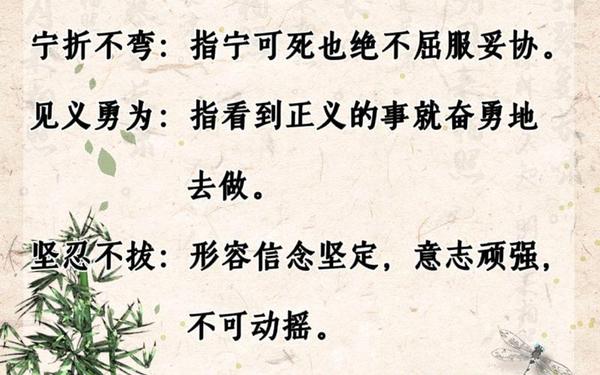 宁折不弯：指宁可死也绝不屈服妥协。
见义勇为：指看到正义的事就奋勇地
去做。
坚忍不拔：形容信念坚定，意志顽强，
不可动摇。